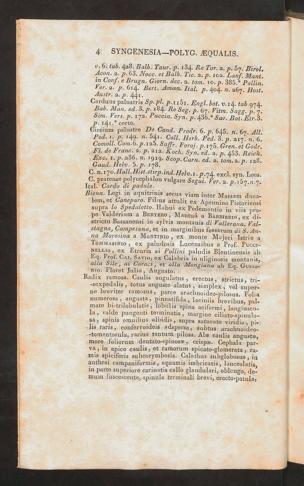 4 SYNGENESIA—POLYG. ÆQUALIS.
v. 6. tab. 428. Balb. Taur. p. 134. Re Tor. 2. p. 57. Birol.
Acon. 2. p. 63. Nocc. et Balb. Tic. 2. p. 102. Lanf. Mant.
in Conf. e Brugn. Giorn. dec. 2. tom. 10. p. 385.* Pollin.
Ver. 2. p. 614. Bert. Amœn. Ital. p. 404. n. 267. Host.
Austr. 2. p. 441.
Carduus palustris Sp. pl. p. 1151. Engl. bot. v. 14. tab 974.
Bab. Man. ed. 8. p. 184. Re Seg. p. 67. Vitm. Sugg. p. 7.
Sim. Vers. p. 172. Puccin. Syn. p. 436.* Sav. Bot. Etr. 3.
p. 141.* certo.
Cirsium palustre De Cand. Prodr. 6. p. 645. n. 67. All.
Ped. 1. p. 149. n. 541. Coll. Herb. Ped. 3. p. 217. n. 6.
Comoll. Com. 6. p. 125. Suffr. Foroj. p. 175. Gren. et Godr.
Fl. de Franc. 2. p. 212. Koch. Syn. ed. 2. p. 453. Reich.
Exc. 1. p. 286. n. 1929. Scop. Carn. ed. 2. tom. 2. p. 128.
Gaud. Helv. 5. p. 178.
C. n. 170. Hall. Hist. stirp. ind. Helv. 1. p. 74. excl. syn. Loes.
C. pratense polycephalon vulgare Seguier. Ver. 2. p. 157. n. 7.
Ital. Cardo di padule.
Bienn. Legi in aquitrinis secus viam inter Massem ducalem,
et Caneparo. Filius attulit ex Apennino Pistoriensi
supra lo Spedaletto. Habui ex Pedemontio in via prope
Valdieriam a
stricto Bassanensi in sylvis montanis di Valrovina, Valstagna,
Campesana, et in marginibus fossarum di S. Anna
Morosina a
Tommasinio, ex paludosis Lucensibus a Prof. Puccinellio,
ex Etruria ai Pollini paludis Bientinensis ab
Eq. Prof. Caj. Savio, ex Calabria in uliginosis montanis,
alla Sile, ai Caraci, et alla Mongiana ab Eq. Gussonio.
Floret Julio, Augusto.
Radix ramosa. Caulis angulatus, erectus, strictus, tripedalis,
totus anguste alatus, simplex, vel superne
breviter ramosus, parce arachnoideo-pilosus. Folia
numerosa, angusta, pinnatifida, laciniis brevibus, palmato
bi-trilobulatis, lobulis spina acifermi, longiuscula,
valde pungenti terminatis, margine ciliato-spinulosa,
spinis omnibus albidis, supra saturate viridia, pilis
raris, conferruminatis adspersa, subtus arachnoideo-tomentosula,
rarius tantum pilosa. Alæ caulis angustæ,
more foliorum dentato-spinosæ, crispæ. Cephala parva,
in apice caulis, et ramorum spicato-glomerata, ramis
spiciferis subcorymbosis. Calathus subglobosus, in
anthesi campaniformis, squamis imbricatis, lanceolatis,
in parte superiore carinatis callo glandulari, oblongo, demum
fuscescente, spinula terminali brevi, erecto-patula;